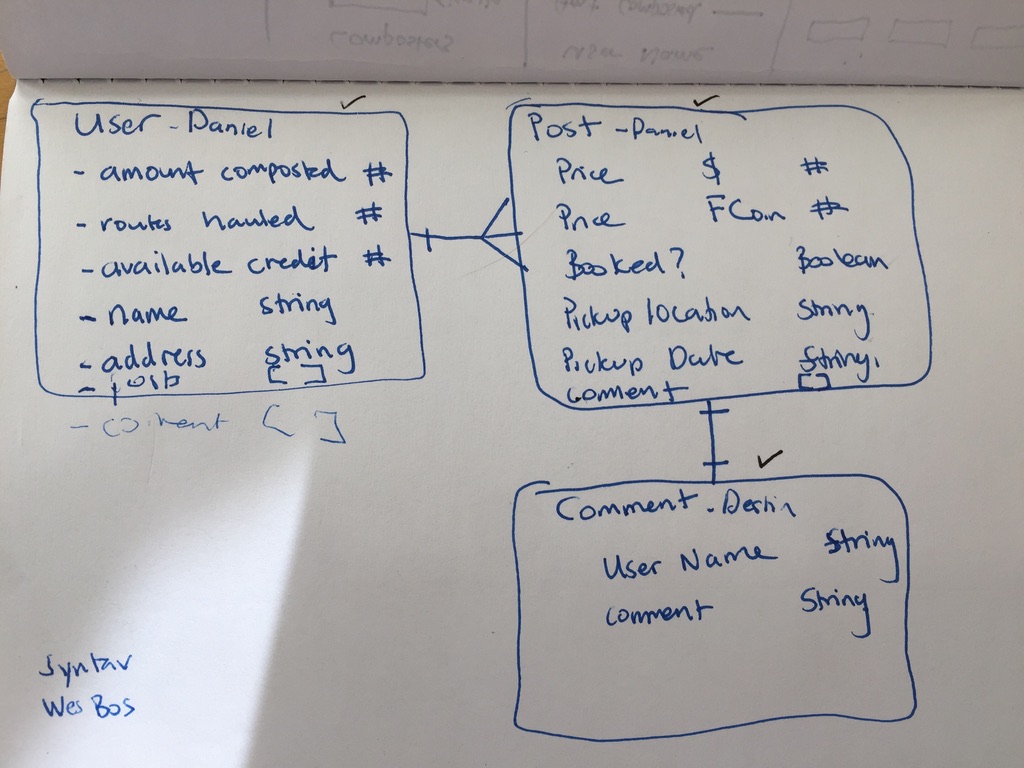 User - Daniel
- amount composted #
- routes hauled #
- available credit #
- name string
- address string
- posts [ ]
- comment [ ]
Post - Daniel
Price $ #
Price FCoin #
Booked? Boolean
Pickup location String
Pickup Date String.
comment []
Comment - Destin
User Name String
comment String
Syntax
Wes Bos